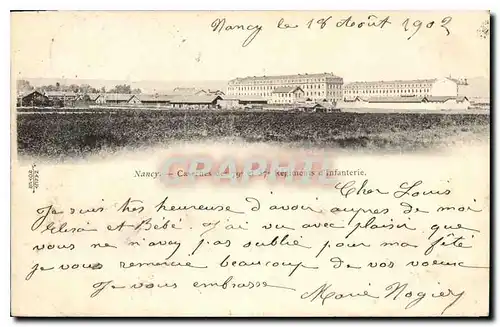 Nancy le 18 Août 1902
Nancy. — Casernes des et 37e Régiments d'infanterie.
Cher Louis
Je suis très heureuse d'avoir auprès de moi
et Bébé. J'ai vu avec plaisir que
vous ne n'avez pas oublié pour ma fête
je vous remercie beaucoup de vos voeux
Je vous embrasse
Marie